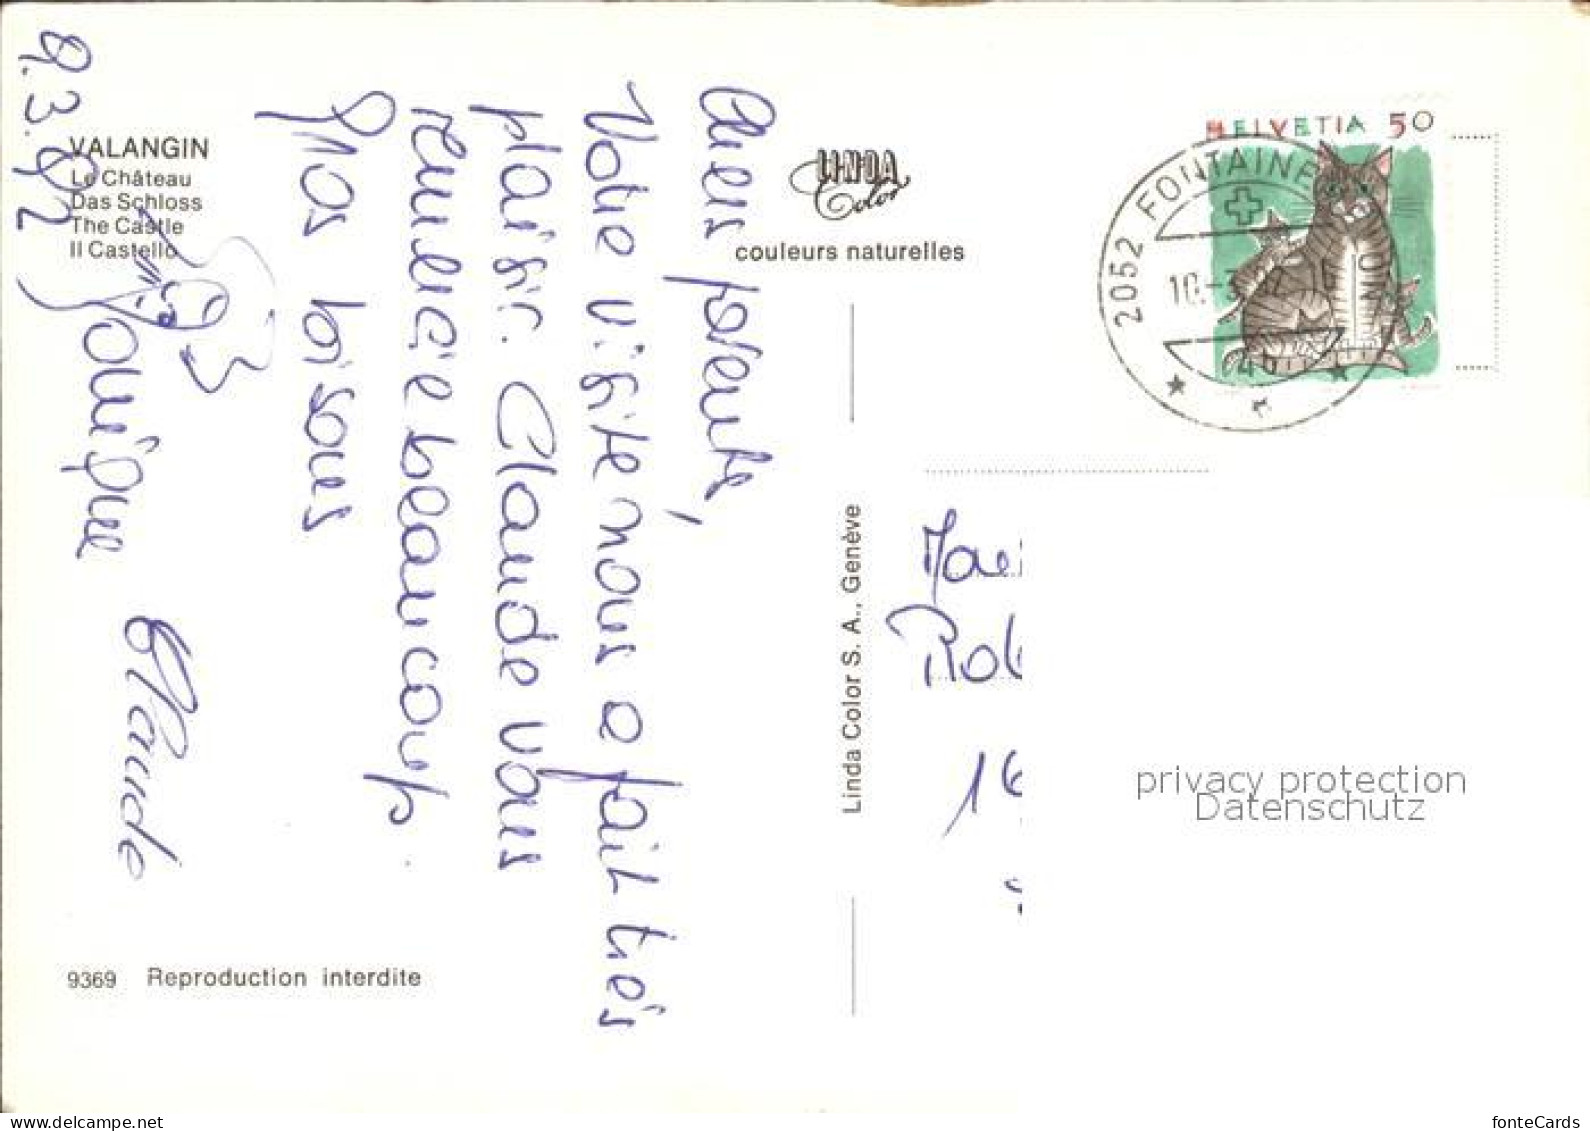 9.3.92
Chers parents,
Votre visite nous a fait très
plaisir. Claude vous
remercie beaucoup.
Gros bisous
Claude
VALANGIN
Le Château
Das Schloss
The Castle
Il Castello
9369 Reproduction interdite
LINDA
Color
couleurs naturelles
Linda Color S. A., Genève
HELVETIA 50
2052 FONTAINE
privacy protection
Datenschutz
www.delcampe.net
fonteCards